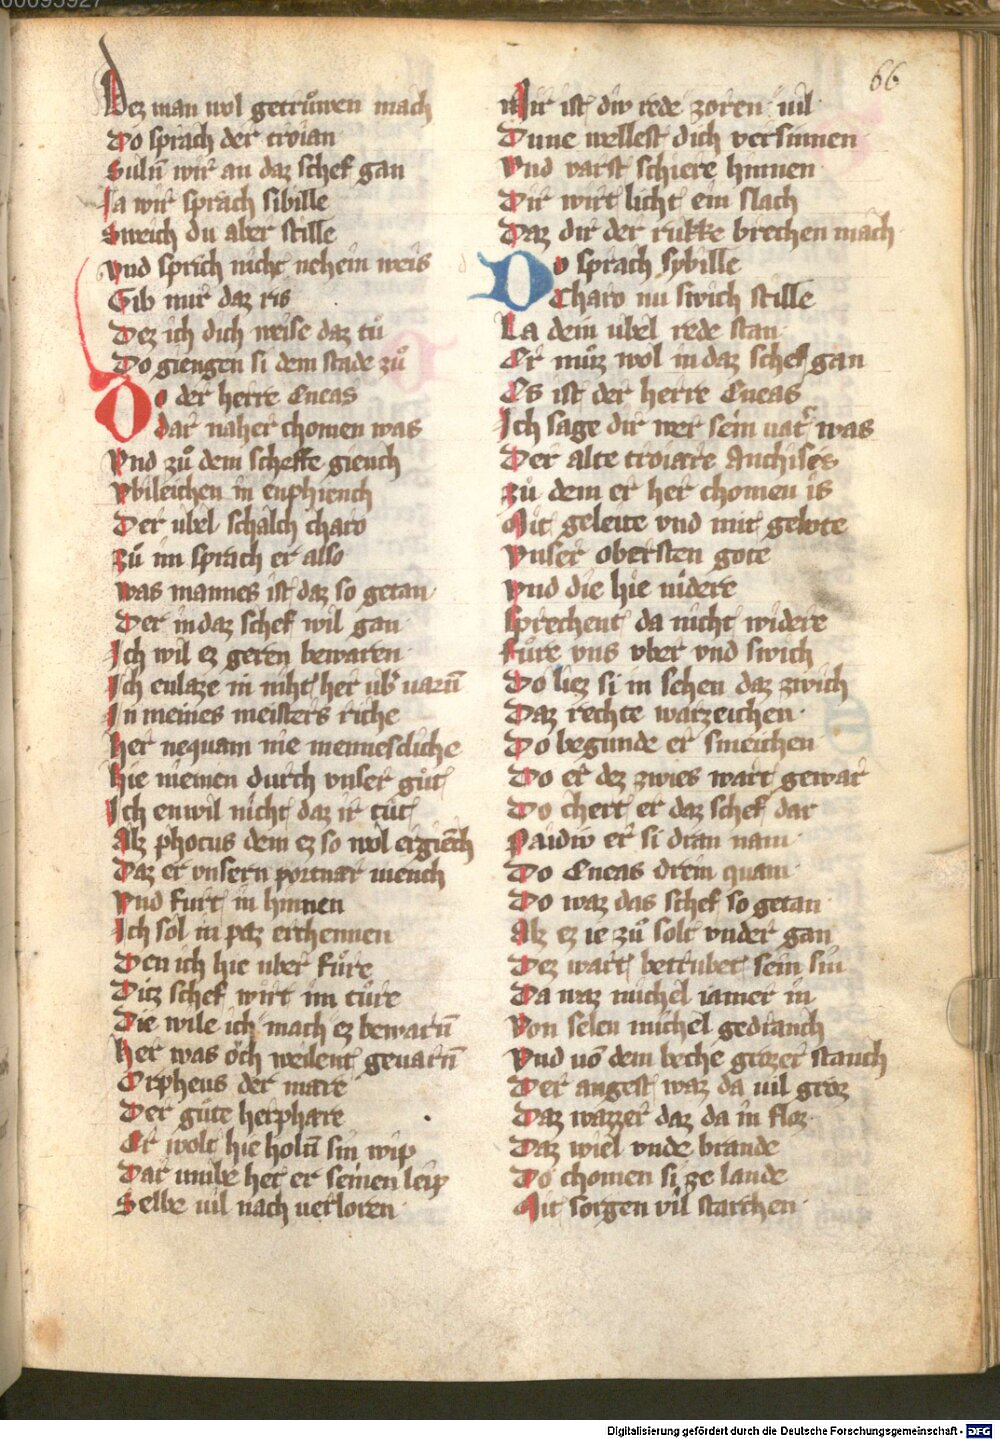 00095927
66
Dez man wol getruͦwen mach
Do sprach der troian
Suln̄ wir an daz schef gan
Ja wir sprach sibille
Sweich du aber stille
Vnd sprich nicht nehein weis
Gib mir daz ris
Dez ich dich weise daz tuͦ
Do giengen si dem stade zuͦ
Do der herre Eneas
dar naher chomen was
Vnd zuͦ dem scheffe giench
Vbileichen in enphiench
Der ubel schalch charo
Zuͦ im sprach er also
Was mannes ist daz so getan
Der in daz schef wil gan
Ich wil ez geren bewaren
Ich enlaze in niht her ub' uarn̄
In meines meisters riche
Her nequam nie mennescliche
Hie niemen durch vnser guͦt
Ich enwil nicht daz ir tuͦt
Alz phocus dem ez so wol ergiēch
Daz er vnsern portnar viench
Vnd furt in hinnen
Ich sol in paz erchennen
Den ich hie uber fuͦre
Ditz schef wirt im tuͦre
Die wile ich mach ez bewarn̄
Her was och weilent geuarn̄
Orpheus der mare
Der guͦte herphare
Er wolt hie holn̄ sin wip
Dar umbe het er seinen leip
Selbe uil nach uerloren
Mir ist diw rede zoren uil
Dune wellest dich versinnen
Vnd varst schiere hinnen
Dir wirt licht ein slach
Daz dir der rukke brechen mach
Do sprach sybille
Charo nu swich stille
La dein ubel rede stan
Er muͦz wol in daz schef gan
Es ist der herre Eneas
Ich sage dir wer sein uat' was
Der alte troiare Anchises
Zuͦ dem er her chomen is
Mit geleite vnd mit gebote
Vnser obersten gote
Vnd die hie nidere
Sprechent da nicht widere
Fuͦre vns vber vnd swich
Do liez si in sehen daz zwich
Daz rechte warzeichen
Do begunde er smeichen
Do er dez zwies wart gewar
Do chert er daz schef dar
Paidiv er si dran nam
Do Eneas drein quam
Do waz das schef so getan
Alz ez ie zuͦ solt vnder gan
Dez wart betrubet sein sin
Da waz michel iamer in
Von selen michel gedranch
Vnd uō dem beche grozer stanch
Der angest waz da uil groz
Daz wazzer daz da in floz
Daz wiel vnde brande
Do chomen si ze lande
Mit sorgen vil starchen
Digitalisierung gefördert durch die Deutsche Forschungsgemeinschaft - DFG